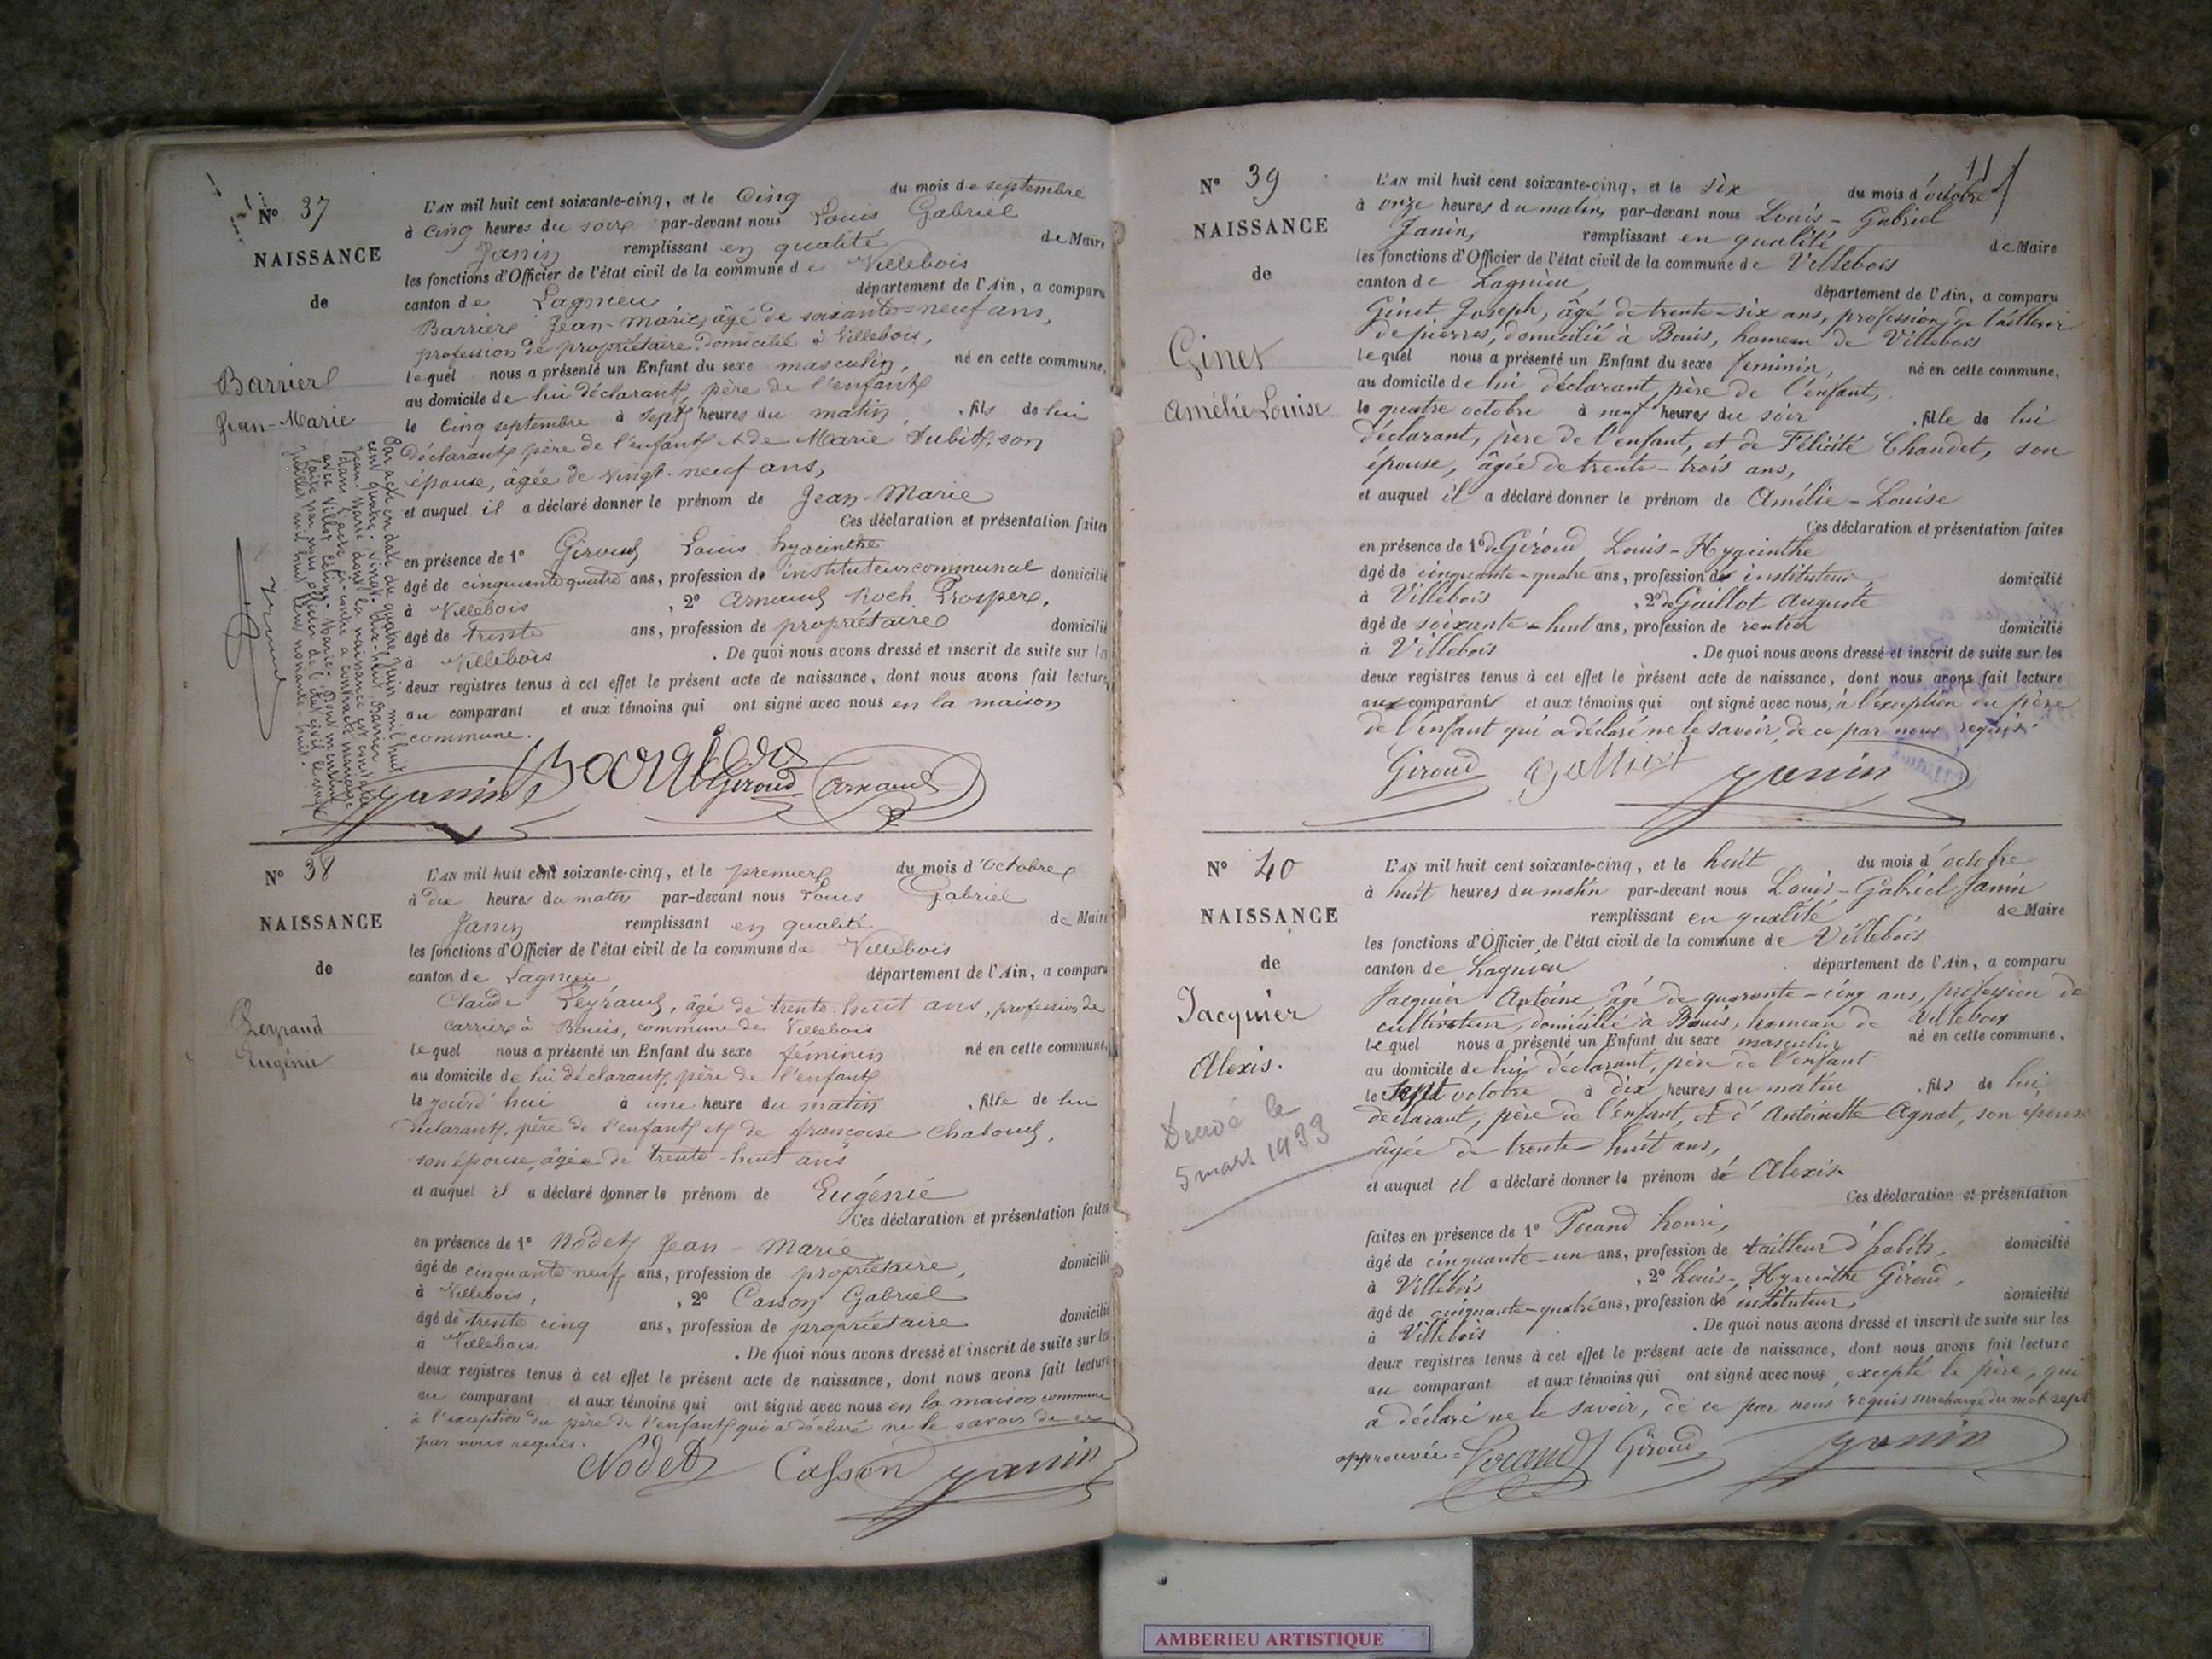 N° 37
NAISSANCE
de
Barrier
Jean-Marie
L'AN mil huit cent soixante-cinq, et le Cinq du mois de septembre
à Cinq heures du soir par-devant nous Louis Gabriel
Janin remplissant en qualité de Maire
les fonctions d'Officier de l'état civil de la commune de Villebois
canton de Lagnieu département de l'Ain, a comparu
Barrier Jean-Marie, âgé de soixante-neuf ans,
profession de propriétaire, domicilié à Villebois,
lequel nous a présenté un Enfant du sexe masculin, né en cette commune,
au domicile de lui déclarant, père de l'enfant
le Cinq septembre à sept heures du matin, fils de lui
déclarant, père de l'enfant et de Marie Dubit, son
épouse, âgée de vingt-neuf ans,
et auquel il a déclaré donner le prénom de Jean-Marie
Ces déclaration et présentation faites
en présence de 1° Giroud Louis hyacinthe
âgé de cinquante quatre ans, profession de instituteur communal domicilié
à Villebois, 2° Arnaud Roch Prosper,
âgé de trente ans, profession de propriétaire domicilié
à Villebois. De quoi nous avons dressé et inscrit de suite sur les
deux registres tenus à cet effet le présent acte de naissance, dont nous avons fait lecture
au comparant et aux témoins qui ont signé avec nous en la maison
commune.
Par acte en date du quatre juin mil huit
cent quatre-vingt-dix-huit Barrier
Jean-Marie dont la naissance est constatée
dans l'acte ci-contre a contracté mariage
avec Marie. Dont mention
faite par nous officier de l'état civil
juillet mil huit cent nonante-huit.
Janin Barrier Giroud Arnaud
N° 38
NAISSANCE
de
Leyraud
Eugénie
L'AN mil huit cent soixante-cinq, et le premier du mois d'Octobre
à dix heures du matin par-devant nous Louis Gabriel
Janin remplissant en qualité de Maire
les fonctions d'Officier de l'état civil de la commune de Villebois
canton de Lagnieu département de l'Ain, a comparu
Claude Leyraud, âgé de trente-huit ans, profession de
carrier à Bouis, commune de Villebois
lequel nous a présenté un Enfant du sexe féminin né en cette commune,
au domicile de lui déclarant, père de l'enfant
le jourd'hui à une heure du matin, fille de lui
déclarant, père de l'enfant et de françoise Chaboud,
son épouse, âgée de trente-huit ans
et auquel il a déclaré donner le prénom de Eugénie
Ces déclaration et présentation faites
en présence de 1° Nodet Jean-Marie
âgé de cinquante neuf ans, profession de propriétaire, domicilié
à Villebois, 2° Casson Gabriel
âgé de trente cinq ans, profession de propriétaire domicilié
à Villebois. De quoi nous avons dressé et inscrit de suite sur les
deux registres tenus à cet effet le présent acte de naissance, dont nous avons fait lecture
au comparant et aux témoins qui ont signé avec nous en la maison commune
à l'exception du père de l'enfant qui a déclaré ne le savoir de ce
par nous requis.
Nodet Casson Janin
11
N° 39
NAISSANCE
de
Ginet
Amélie Louise
L'AN mil huit cent soixante-cinq, et le six du mois d'octobre
à onze heures du matin, par-devant nous Louis-Gabriel
Janin, remplissant en qualité de Maire
les fonctions d'Officier de l'état civil de la commune de Villebois
canton de Lagnieu, département de l'Ain, a comparu
Ginet Joseph, âgé de trente-six ans, profession de tailleur
de pierres, domicilié à Bouis, hameau de Villebois
lequel nous a présenté un Enfant du sexe féminin, né en cette commune,
au domicile de lui déclarant, père de l'enfant,
le quatre octobre à neuf heures du soir, fille de lui
déclarant, père de l'enfant, et de Félicité Chaudet, son
épouse, âgée de trente-trois ans,
et auquel il a déclaré donner le prénom de Amélie-Louise
Ces déclaration et présentation faites
en présence de 1° de Giroud Louis-Hyacinthe
âgé de cinquante-quatre ans, profession de instituteur, domicilié
à Villebois, 2° de Gaillot Auguste
âgé de soixante-huit ans, profession de rentier domicilié
à Villebois. De quoi nous avons dressé et inscrit de suite sur les
deux registres tenus à cet effet le présent acte de naissance, dont nous avons fait lecture
aux comparants et aux témoins qui ont signé avec nous, à l'exception du père
de l'enfant qui a déclaré ne le savoir, de ce par nous requis.
Giroud Janin
N° 40
NAISSANCE
de
Jacquier
Alexis.
Décédé le
5 mars 1933
L'AN mil huit cent soixante-cinq, et le huit du mois d'octobre
à huit heures du matin par-devant nous Louis-Gabriel Janin
remplissant en qualité de Maire
les fonctions d'Officier de l'état civil de la commune de Villebois
canton de Lagnieu département de l'Ain, a comparu
Jacquier Antoine âgé de quarante-cinq ans, profession de
cultivateur, domicilié à Bouis, hameau de Villebois
lequel nous a présenté un Enfant du sexe masculin né en cette commune,
au domicile de lui déclarant, père de l'enfant
le sept octobre à dix heures du matin, fils de lui
déclarant, père de l'enfant, et d'Antoinette Agnat, son épouse
âgée de trente-huit ans,
et auquel il a déclaré donner le prénom de Alexis.
Ces déclaration et présentation
faites en présence de 1° Pocand henri,
âgé de cinquante-un ans, profession de tailleur d'habits, domicilié
à Villebois, 2° Louis-Hyacinthe Giroud,
âgé de cinquante-quatre ans, profession de instituteur, domicilié
à Villebois. De quoi nous avons dressé et inscrit de suite sur les
deux registres tenus à cet effet le présent acte de naissance, dont nous avons fait lecture
au comparant et aux témoins qui ont signé avec nous, excepté le père, qui
a déclaré ne le savoir, de ce par nous requis surcharge du mot sept
approuvée = Pocand Giroud Janin
AMBERIEU ARTISTIQUE